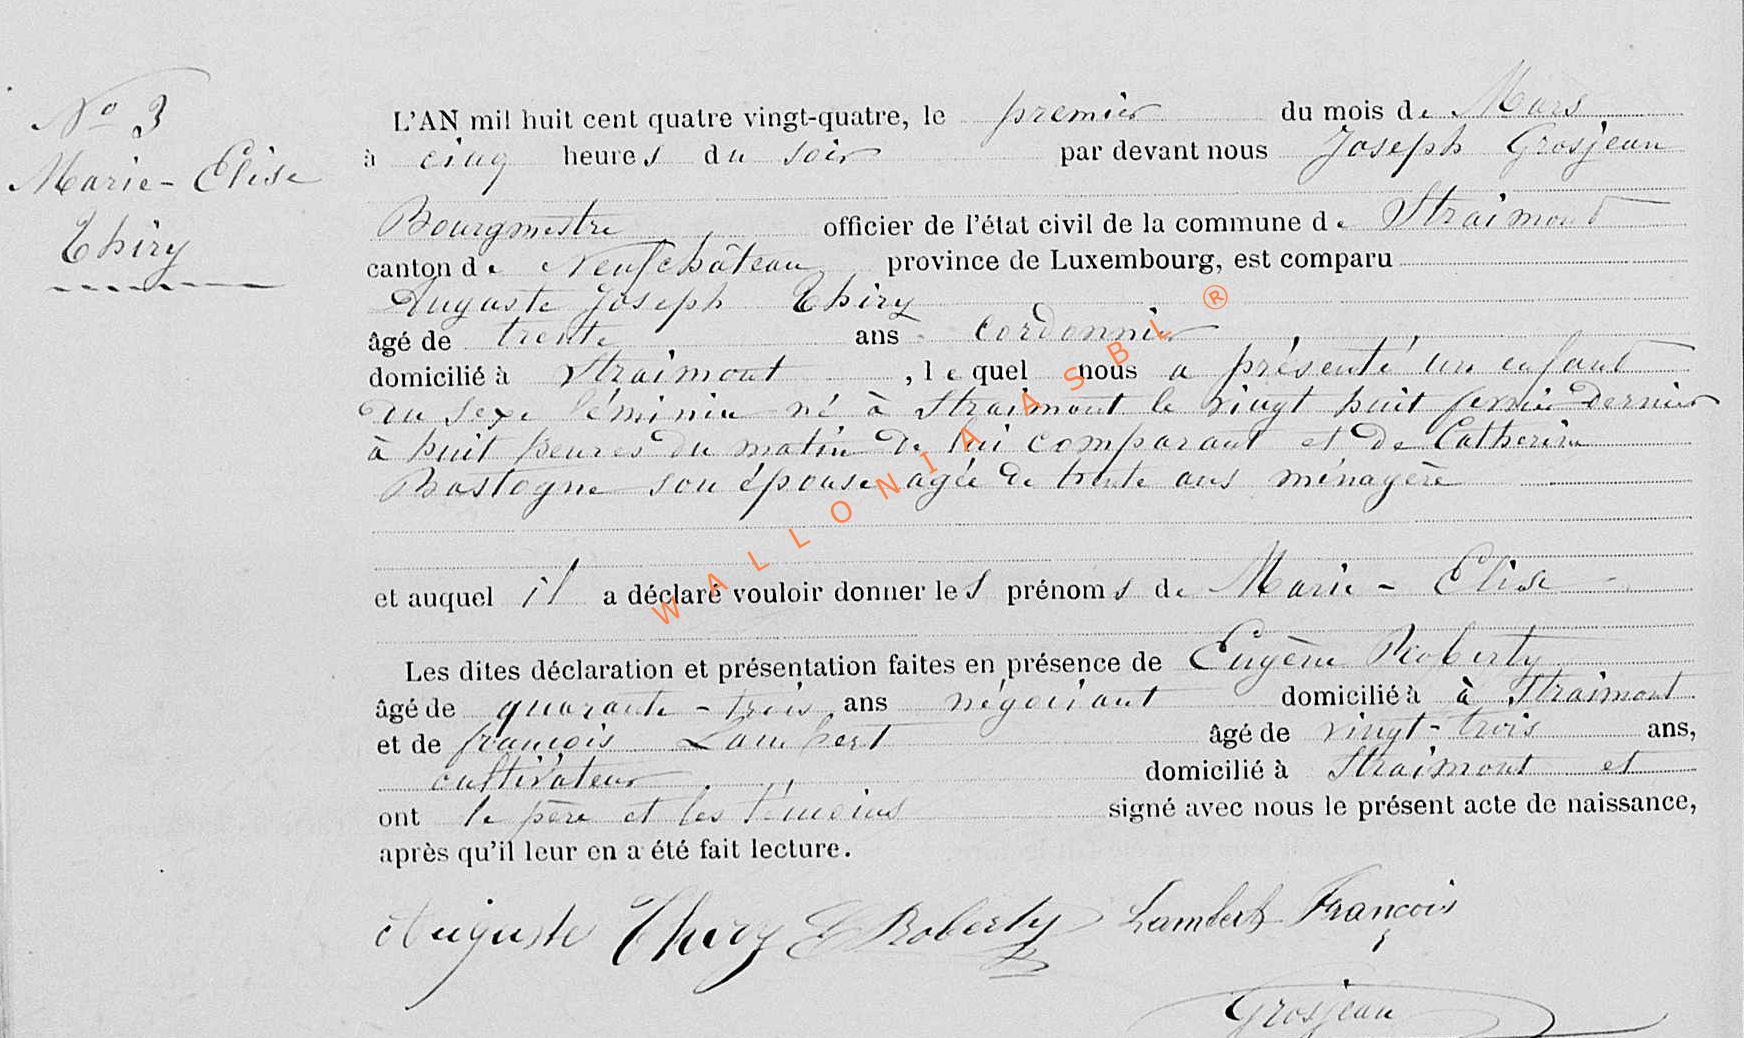 N° 3
Marie - Elise
Thiry
L'AN mil huit cent quatre vingt-quatre, le premier du mois de Mars
à cinq heures du soir par devant nous Joseph Grosjean
Bourgmestre officier de l'état civil de la commune de Straimont
canton de Neufchâteau province de Luxembourg, est comparu
Auguste Joseph Thiry
âgé de trente ans cordonnier
domicilié à Straimont, lequel nous a présenté un enfant
du sexe féminin né à Straimont le vingt huit février dernier
à huit heures du matin de lui comparant et de Catherine
Bastogne son épouse agée de trente ans ménagère
et auquel il a déclaré vouloir donner les prénoms de Marie - Elise
Les dites déclaration et présentation faites en présence de Eugène Roberty
âgé de quarante - trois ans négociant domicilié à à Straimont
et de françois Lambert âgé de vingt - trois ans,
cultivateur domicilié à Straimont et
ont le père et les témoins signé avec nous le présent acte de naissance,
après qu'il leur en a été fait lecture.
Auguste Thiry E Roberty Lambert François
Grosjean
WALLONIA ASBL ®